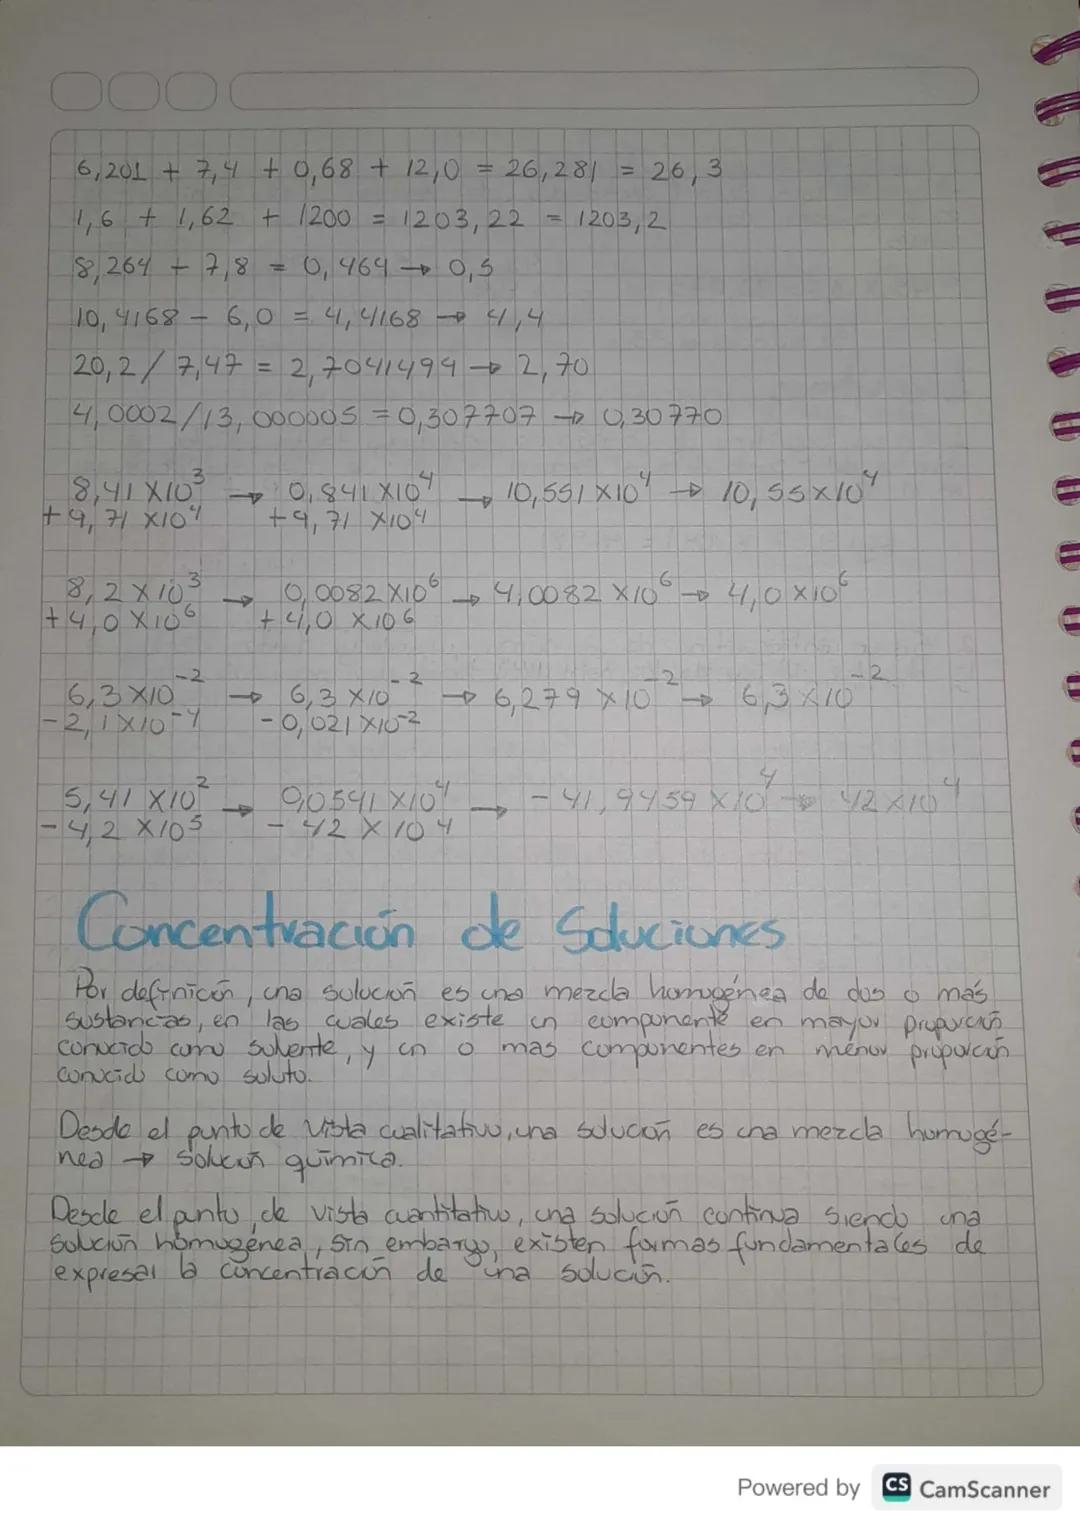 6,201 + 7,4 + 0,68 + 12,0 = 26,281 = 26,3
1,6 + 1,62 + 1200 = 1203,22 = 1203,2
8,264 - 7,8 = 0,464 → 0,5
10,4168 - 6,0 = 4,4168 → 4,4
20,2 / 7,47 = 2,7041499 → 2,70
4,0002/13,000005 = 0,307707 → 0,30770
8,41 X10³ → 0,841 X10⁴ → 10,551 X10⁴ → 10,55x10⁴
+ 9,71 X10⁴ + 9,71 X10⁴
8,2 X 10³ → 0,0082 X10⁶ → 4,0082 X10⁶ → 4,0 X10⁶
+ 4,0 X10⁶ + 4,0 X10⁶
6,3 X10⁻² → 6,3 X10⁻² → 6,279 X10⁻² → 6,3 X10⁻²
- 2,1X10⁻⁴ - 0,021 X10⁻²
5,41 X10² → 0,0541 X10⁴ → - 41,9459 X10⁴ → 42 X10⁴
- 4,2 X10⁵ - 42 X 10⁴
Concentración de Soluciones
Por definición, una solución es una mezcla homogénea de dos o más
sustancias, en las cuales existe un componente en mayor proporción
conocido como solvente, y un o mas componentes en menor proporción
conocido como soluto.
Desde el punto de vista cualitativo, una solución es una mezcla homogé-
nea → solución química.
Desde el punto de vista cuantitativo, una solución continua siendo una
solución homogénea, sin embargo, existen formas fundamentales de
expresar la concentración de una solución.
Powered by CS CamScanner